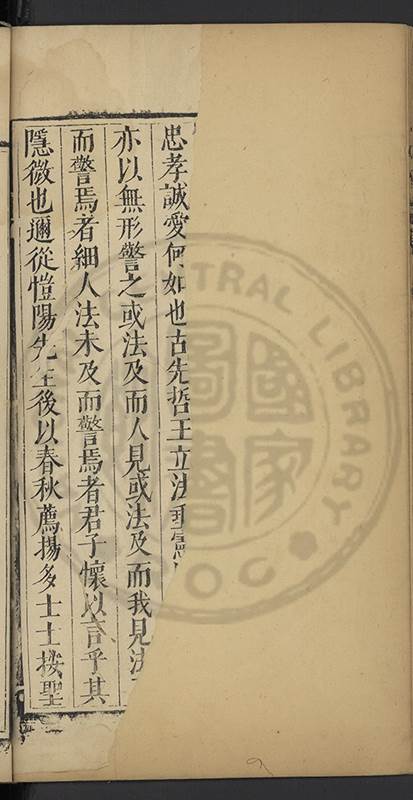 忠孝誠愛何如也古先哲王立法垂憲
亦以無形警之或法及而人見或法及而我見法
而警焉者細人法未及而警焉者君子懷以言乎其
隱微也邇從愷陽先生後以春秋薦揚多士士挾聖
CENTRAL LIBRARY
國家圖書